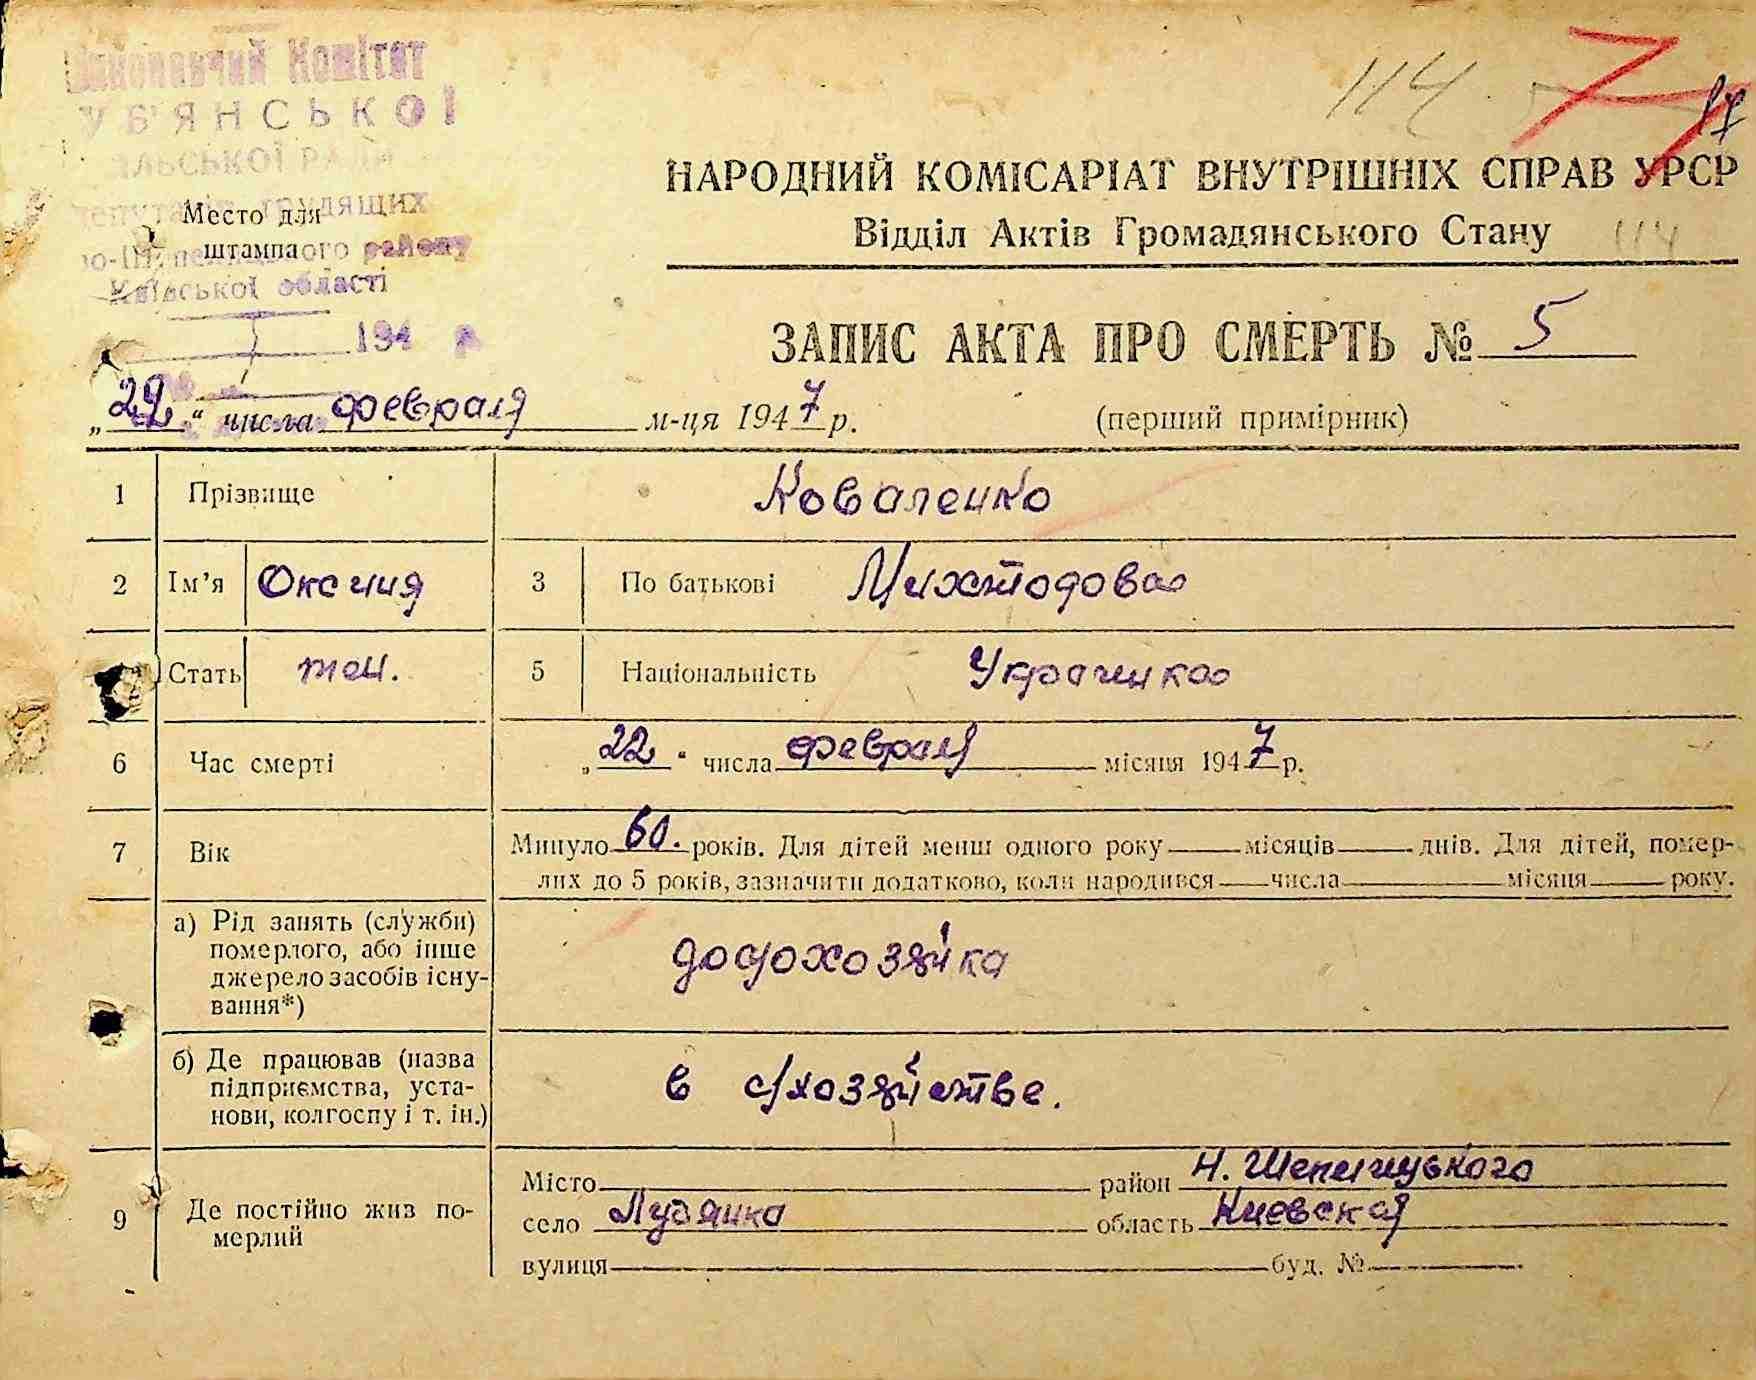 Виконавчий Комітет
УБ'ЯНСЬКОЇ
ІЛЬСЬКОЇ РАДИ
депутатів трудящих
Место для
штампа
району
Київської області
194 р.
114
7
17
НАРОДНИЙ КОМІСАРІАТ ВНУТРІШНІХ СПРАВ УРСР
Відділ Актів Громадянського Стану 114
ЗАПИС АКТА ПРО СМЕРТЬ № 5
„ “ числа февраля м-ця 1947 р. (перший примірник)
1 Прізвище Коваленко
2 Ім'я Оксния 3 По батькові
Стать жен. 5 Національність Украинка
6 Час смерті „22“ числа февраля місяця 1947 р.
7 Вік Минуло 60. років. Для дітей менш одного року місяців днів. Для дітей, помер-
лих до 5 років, зазначити додатково, коли народився числа місяця року.
а) Рід занять (служби)
померлого, або інше
джерело засобів існу-
вання*)
домохозяйка
б) Де працював (назва
підприємства, уста-
нови, колгоспу і т. ін.)
в с/хозяйстве.
9 Де постійно жив по-
мерлий
Місто район Н. Шепеличуького
село Лубянка область Киевская
вулиця буд. №